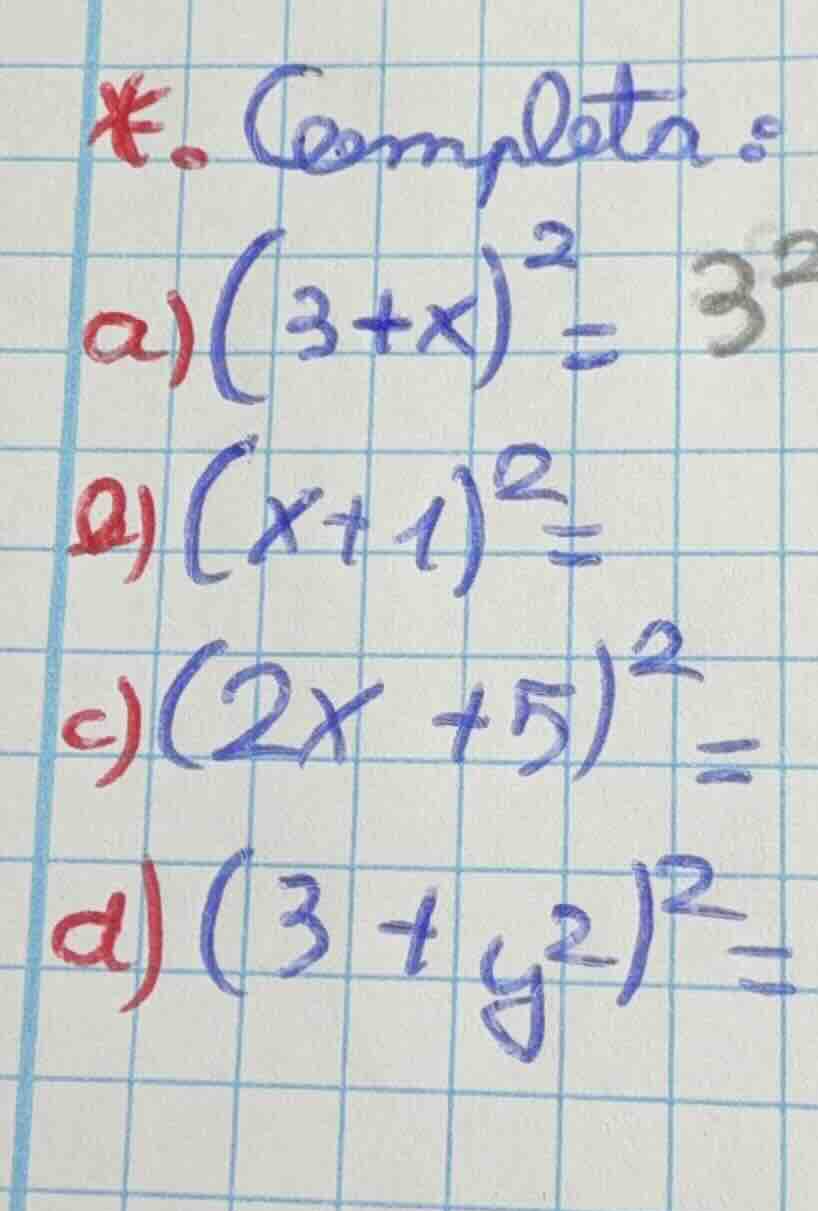 *. Completa:
a) (3+x)² = 3²
b) (x+1)² =
c) (2x +5)² =
d) (3 + y²)² =